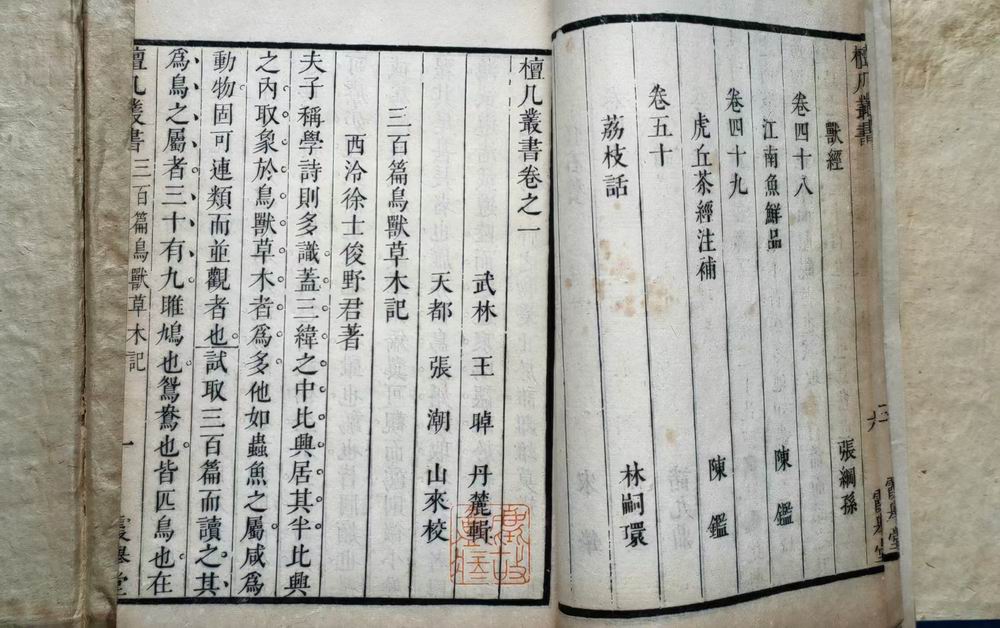 檀几叢書
獸經
張綱孫
卷四十八
江南魚鮮品
陳鑑
卷四十九
虎丘茶經注補
陳鑑
卷五十
荔枝話
林嗣環
霞舉堂
檀几叢書卷之一
武林王晫丹麓輯
天都張潮山來校
三百篇鳥獸草木記
西泠徐士俊野君著
夫子稱學詩則多識蓋三緯之中比興居其半比興
之內取象於鳥獸草木者爲多他如蟲魚之屬咸爲
動物固可連類而並觀者也試取三百篇而讀之其
爲鳥之屬者三十有九雎鳩也鴛鴦也皆匹鳥也在
檀几叢書
三百篇鳥獸草木記
一
霞舉堂